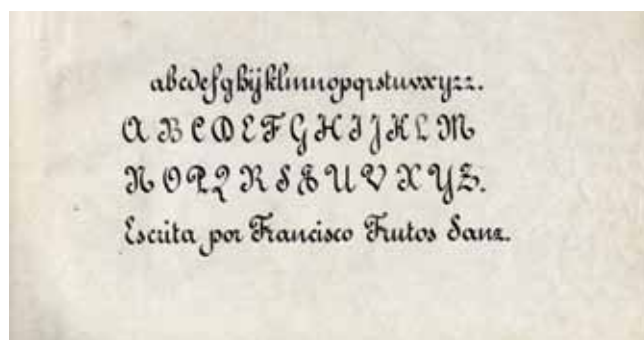 abcdefghijklmnopqrstuvxyzz.
A B C D E F G H I J K L M
N O P Q R S T U V X Y Z.
Escrita por Francisco Frutos Sanz.